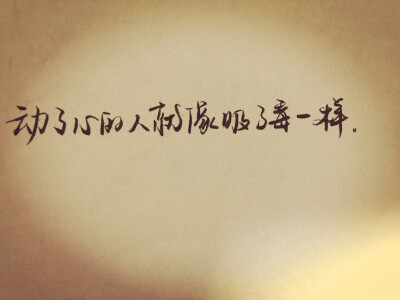 动了心的人就像吸了毒一样.